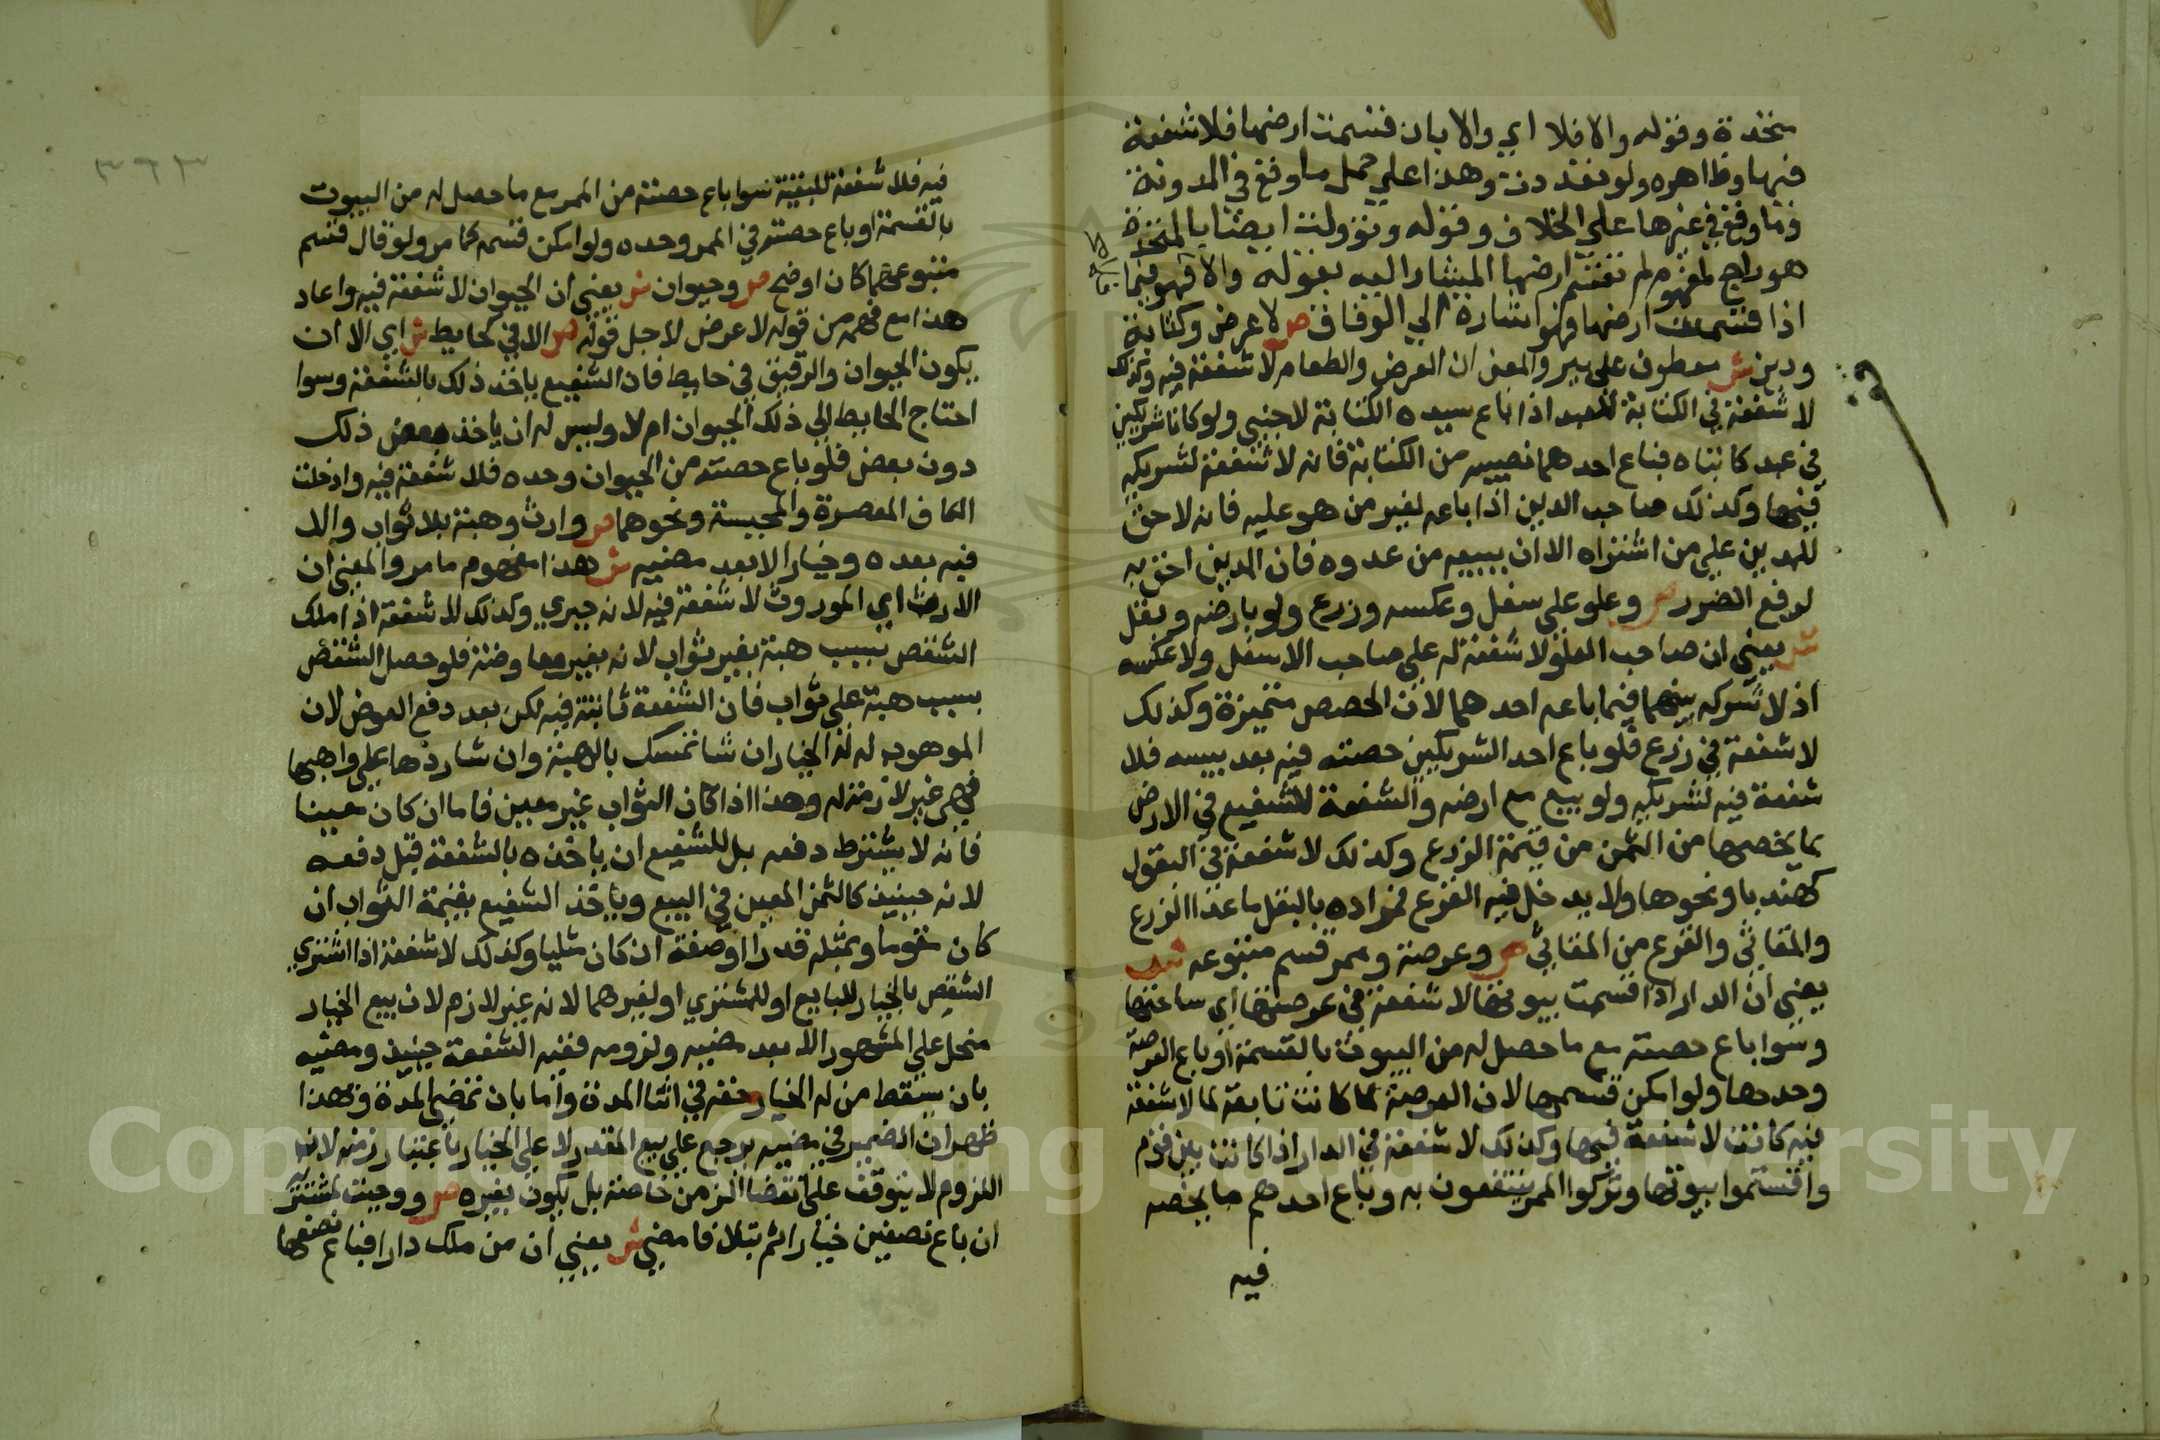 متحدة وقوله والا فلا اي والا بان قسمت ارضها فلا شفعة
فيها وظاهره ولو تعددت وهذا علي حمل ما وقع في المدونة
وما وقع في غيرها علي الخلاف وقوله وتؤولت ايضا بالمتحدة
هو راجع لمفهوم لم تقسم ارضها المشار اليه بقوله والا فهو فيما
اذا قسمت ارضها فهو اشارة الي الوفاق ص لا عرض وكتابة
ودين ش معطوف علي بير والمعني ان العرض والطعام لا شفعة فيه وكذلك
لا شفعة في الكتابة للعبد اذا باع سيده الكتابة لاجنبي ولو كانا شريكين
في عبد كاتباه فباع احدهما نصيبه من الكتابة فانه لا شفعة لشريكه
فيها وكذلك صاحب الدين اذا باعه لغير من هو عليه فانه لا حق
للمدين علي من اشتراه الا ان يبيعه من عدوه فان المدين احق به
لدفع الضرر ص وعلو علي سفل وعكسه وزرع ولو بارضه وبقل
ش يعني ان صاحب العلو لا شفعة له علي صاحب الاسفل ولا عكسه
اذ لا شركة بينهما فيما باعه احدهما لان الحصص متميزة وكذلك
لا شفعة في زرع فلو باع احد الشريكين حصته فيه بعد يبسه فلا
شفعة فيه لشريكه ولو بيع مع ارضه والشفعة للشفيع في الارض
بما يخصها من الثمن من قيمة الزرع وكذلك لا شفعة في البقول
كهندبا ونحوها ولا يدخل فيه القرع فمراده بالبقل ما عدا الزرع
والمقاثي والقرع من المقاثي ص وعرصة وممر قسم متبوعه ش
يعني ان الدار اذا قسمت بيوتها لا شفعة في عرصتها اي ساحتها
وسوا باع حصته مع ما حصل له من البيوت بالقسمة او باع العرصة
وحدها ولو امكن قسمها لان العرصة لما كانت تابعة لما لا شفعة
فيه كانت لا شفعة فيها وكذلك لا شفعة في الدار اذا كانت بين قوم
واقتسموا بيوتها وتركوا الممر ينتفعون به وباع احدهم ما يخصه
فيه
٣٦٣
فيه فلا شفعة للبقية سوا باع حصته من الممر مع ما حصل له من البيوت
بالقسمة او باع حصته في الممر وحده ولو امكن قسمه كما مر ولو قال قسم
متبوعهما كان اوضح ص وحيوان ش يعني ان الحيوان لا شفعة فيه واعاد
هذا مع فهمه من قوله لا عرض لاجل قوله ص الا في كحايط ش اي الا ان
يكون الحيوان والرقيق في حايط فان الشفيع ياخذ ذلك بالشفعة وسوا
احتاج الحايط الي ذلك الحيوان ام لا وليس له ان ياخذ بعض ذلك
دون بعض فلو باع حصته من الحيوان وحده فلا شفعة فيه وادخلت
الكاف المعصرة والمجبسة ونحوهما ص وارث وهبة بلا ثواب والا
فيه بعده وخيار الا بعد مضيه ش هذا مفهوم ما مر والمعني ان
الارث اي الموروث لا شفعة فيه لانه جبري وكذلك لا شفعة اذا ملك
الشقص بسبب هبة بغير ثواب لانه بغير معاوضة فلو حصل الشقص
بسبب هبة علي ثواب فان الشفعة ثابتة فيه لكن بعد دفع العوض لان
الموهوب له له الخيار ان شا تمسك بالهبة وان شا ردها علي واهبها
فهي غير لازمة له وهذا اذا كان الثواب غير معين فاما ان كان معينا
فانه لا يشترط دفعه بل للشفيع ان ياخذه بالشفعة قبل دفعه
لانه حينيذ كالثمن المعين في البيع وياخذ الشفيع بقيمة الثواب ان
كان مقوما وبمثله قدرا وصفة ان كان مثليا وكذلك لا شفعة اذا اشتري
الشقص بالخيار للبايع او للمشتري او لغيرهما لانه غير لازم لان بيع الخيار
منحل علي المشهور الا بعد مضيه ولزومه ففيه الشفعة حينيذ ومضيه
بان يسقط من له الخيار حقه في اثنا المدة واما بان تمضي المدة وبهذا
ظهر ان الضمير في مضيه يرجع علي بيع المقدر لا علي الخيار باعتبار زمنه لانه
اللزوم لا يتوقف علي انقضا الزمن خاصة بل يكون بغيره ص ووجبت لمشتر
ان باع نصفين خيارا ثم بتلا فامضي ش يعني ان من ملك دارا فباع نصفها